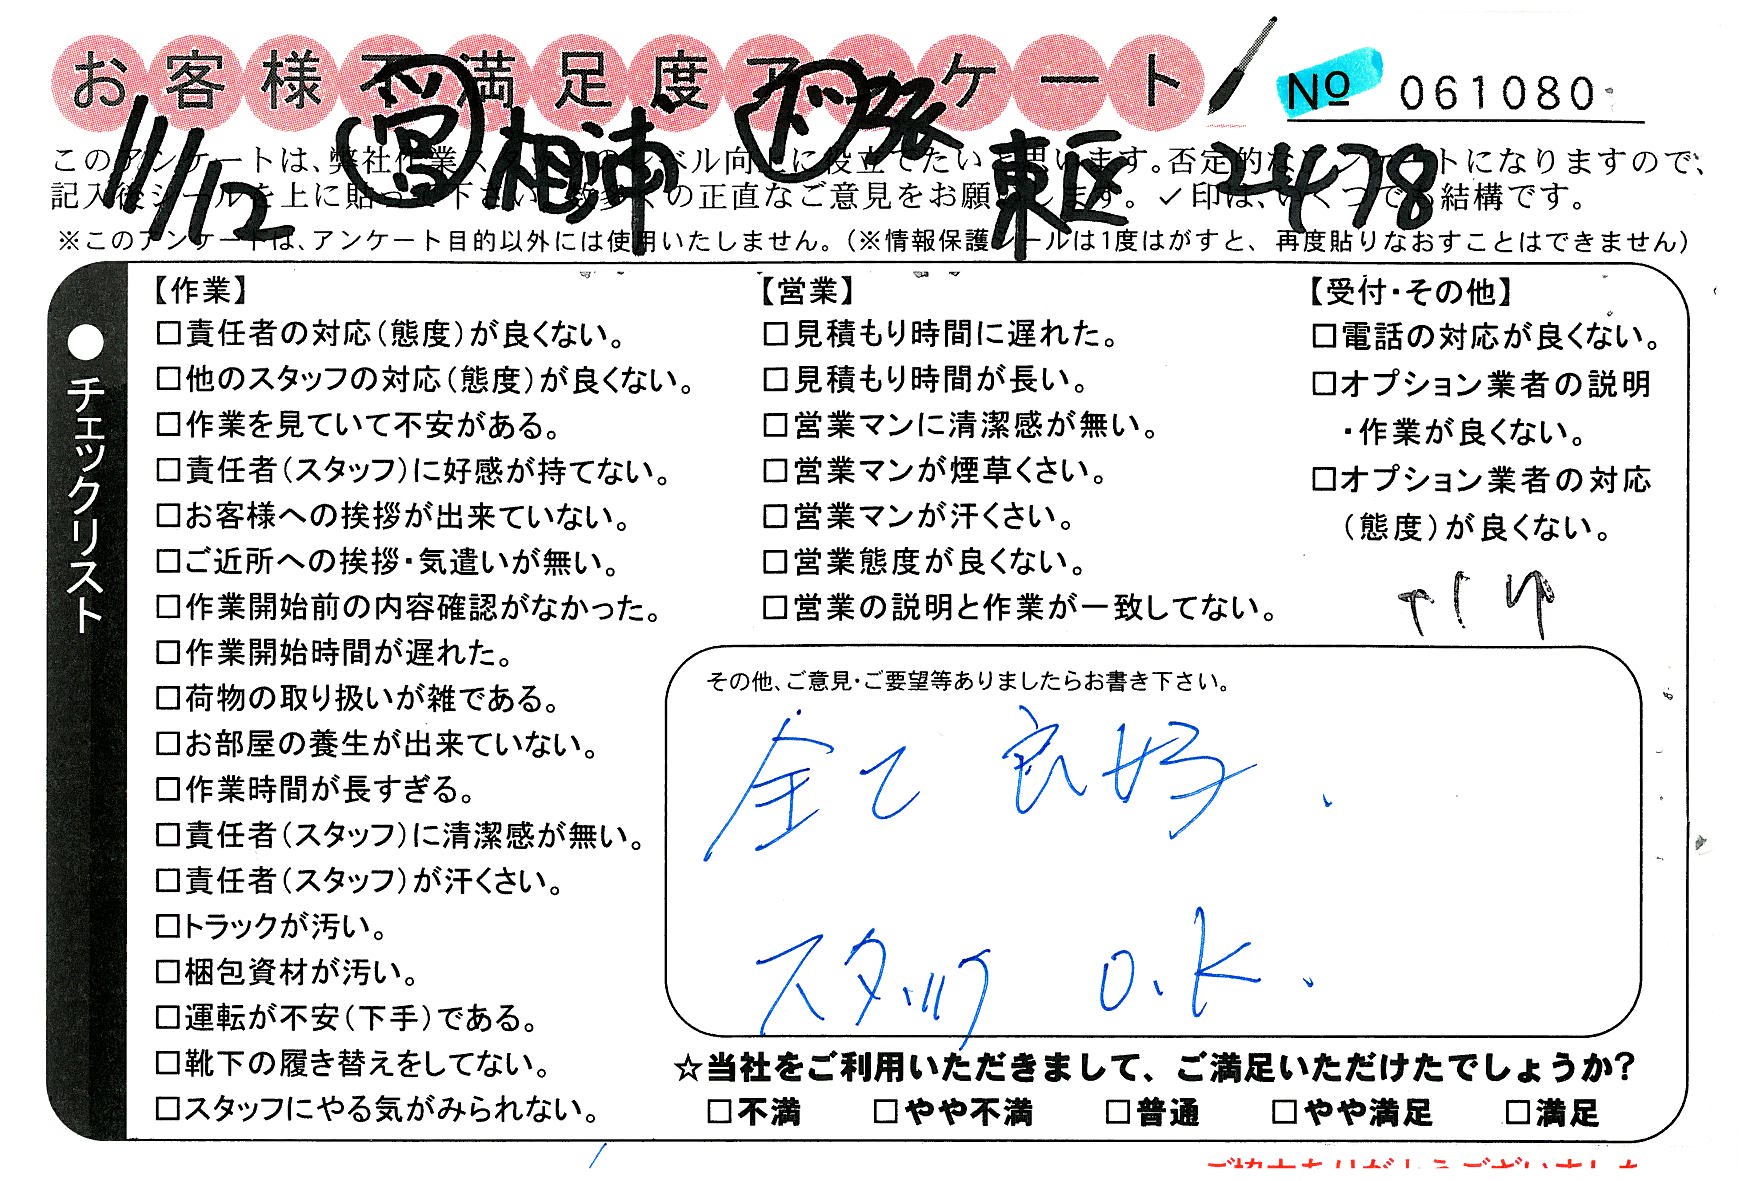 お客様不満足度アンケート
No 061080
11/12 相浦 東区 2478
このアンケートは、弊社作業スタッフのレベル向上に役立てたいと思います。否定的なアンケートになりますので、
記入後シールを上に貼って下さい。数多くの正直なご意見をお願いします。✓印は、いくつでも結構です。
※このアンケートは、アンケート目的以外には使用いたしません。(※情報保護シールは1度はがすと、再度貼りなおすことはできません)
●チェックリスト
【作業】
□責任者の対応(態度)が良くない。
□他のスタッフの対応(態度)が良くない。
□作業を見ていて不安がある。
□責任者(スタッフ)に好感が持てない。
□お客様への挨拶が出来ていない。
□ご近所への挨拶・気遣いが無い。
□作業開始前の内容確認がなかった。
□作業開始時間が遅れた。
□荷物の取り扱いが雑である。
□お部屋の養生が出来ていない。
□作業時間が長すぎる。
□責任者(スタッフ)に清潔感が無い。
□責任者(スタッフ)が汗くさい。
□トラックが汚い。
□梱包資材が汚い。
□運転が不安(下手)である。
□靴下の履き替えをしてない。
□スタッフにやる気がみられない。
【営業】
□見積もり時間に遅れた。
□見積もり時間が長い。
□営業マンに清潔感が無い。
□営業マンが煙草くさい。
□営業マンが汗くさい。
□営業態度が良くない。
□営業の説明と作業が一致してない。
【受付・その他】
□電話の対応が良くない。
□オプション業者の説明
・作業が良くない。
□オプション業者の対応
(態度)が良くない。
その他、ご意見・ご要望等ありましたらお書き下さい。
全て 良好.
スタッフ O.K.
☆当社をご利用いただきまして、ご満足いただけたでしょうか?
□不満 □やや不満 □普通 □やや満足 □満足
ご協力ありがとうございました